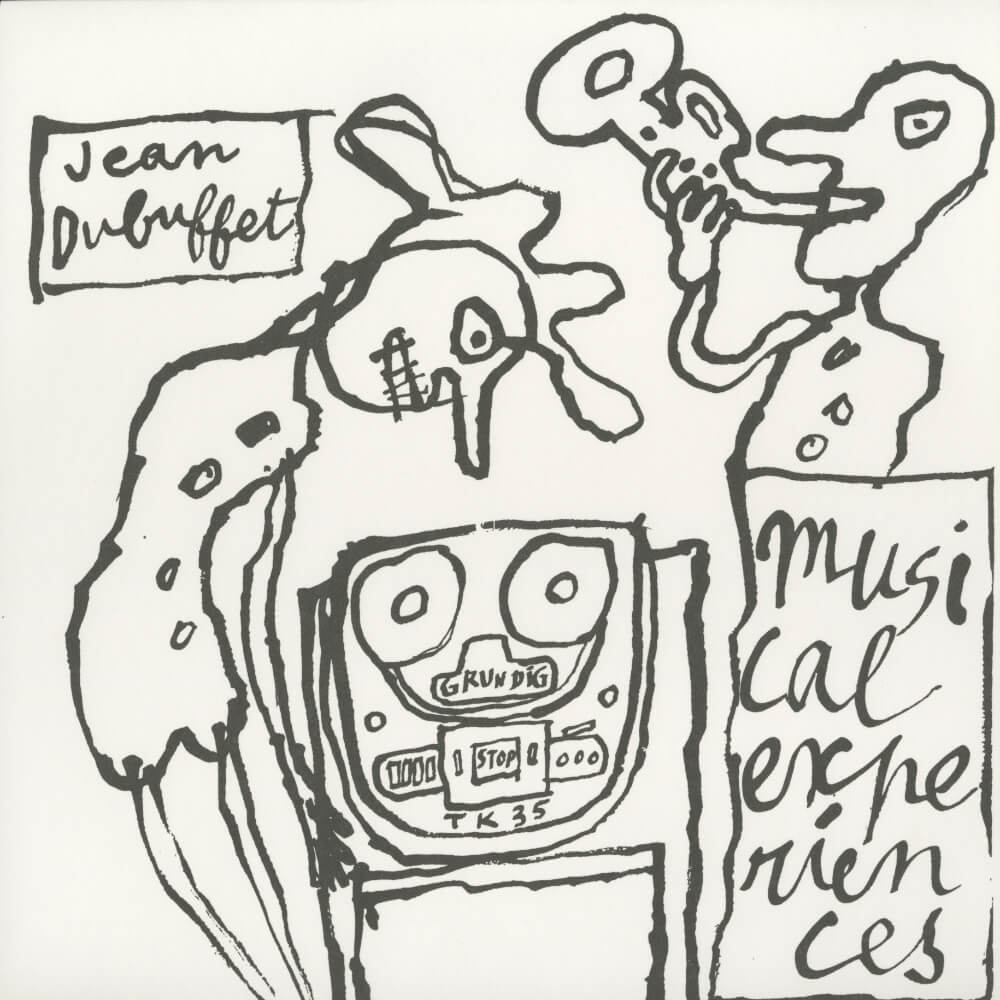 Jean
Dubuffet
GRUNDIG
STOP
TK 35
musi
cal
expe
rien
ces